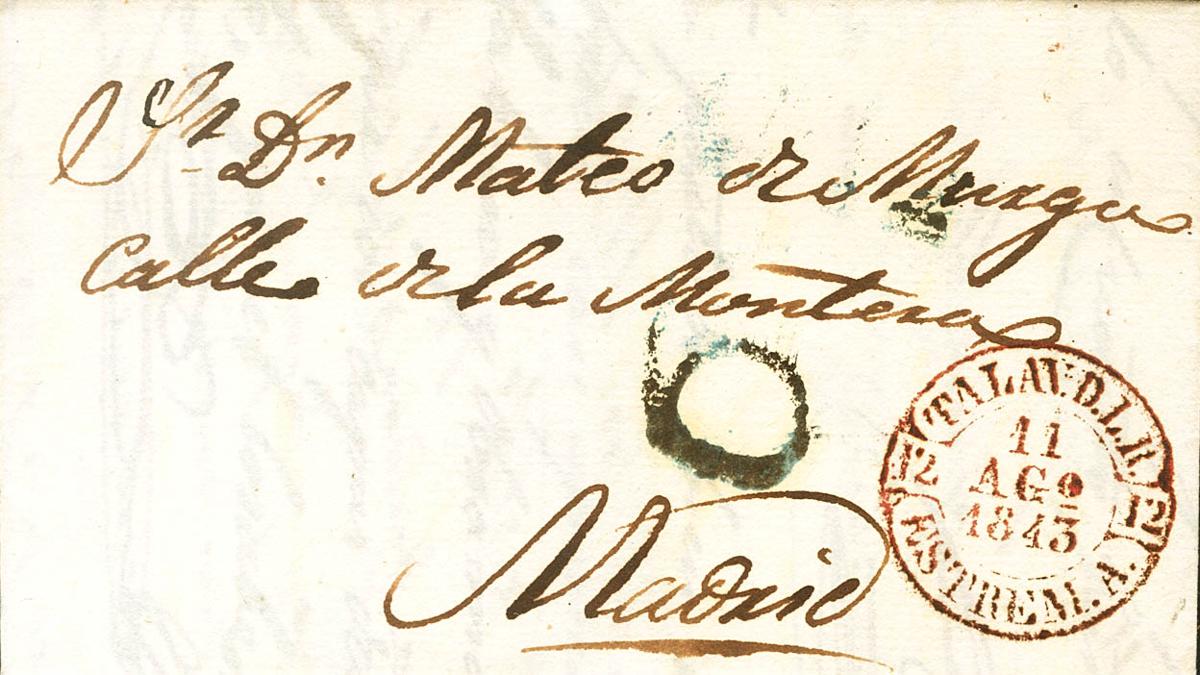 Sr Dn. Mateo de Murga
Calle de la Montera
Madrid
TALAV.D.L.R.
12
11
AGO
1843
12
ESTREM.A.